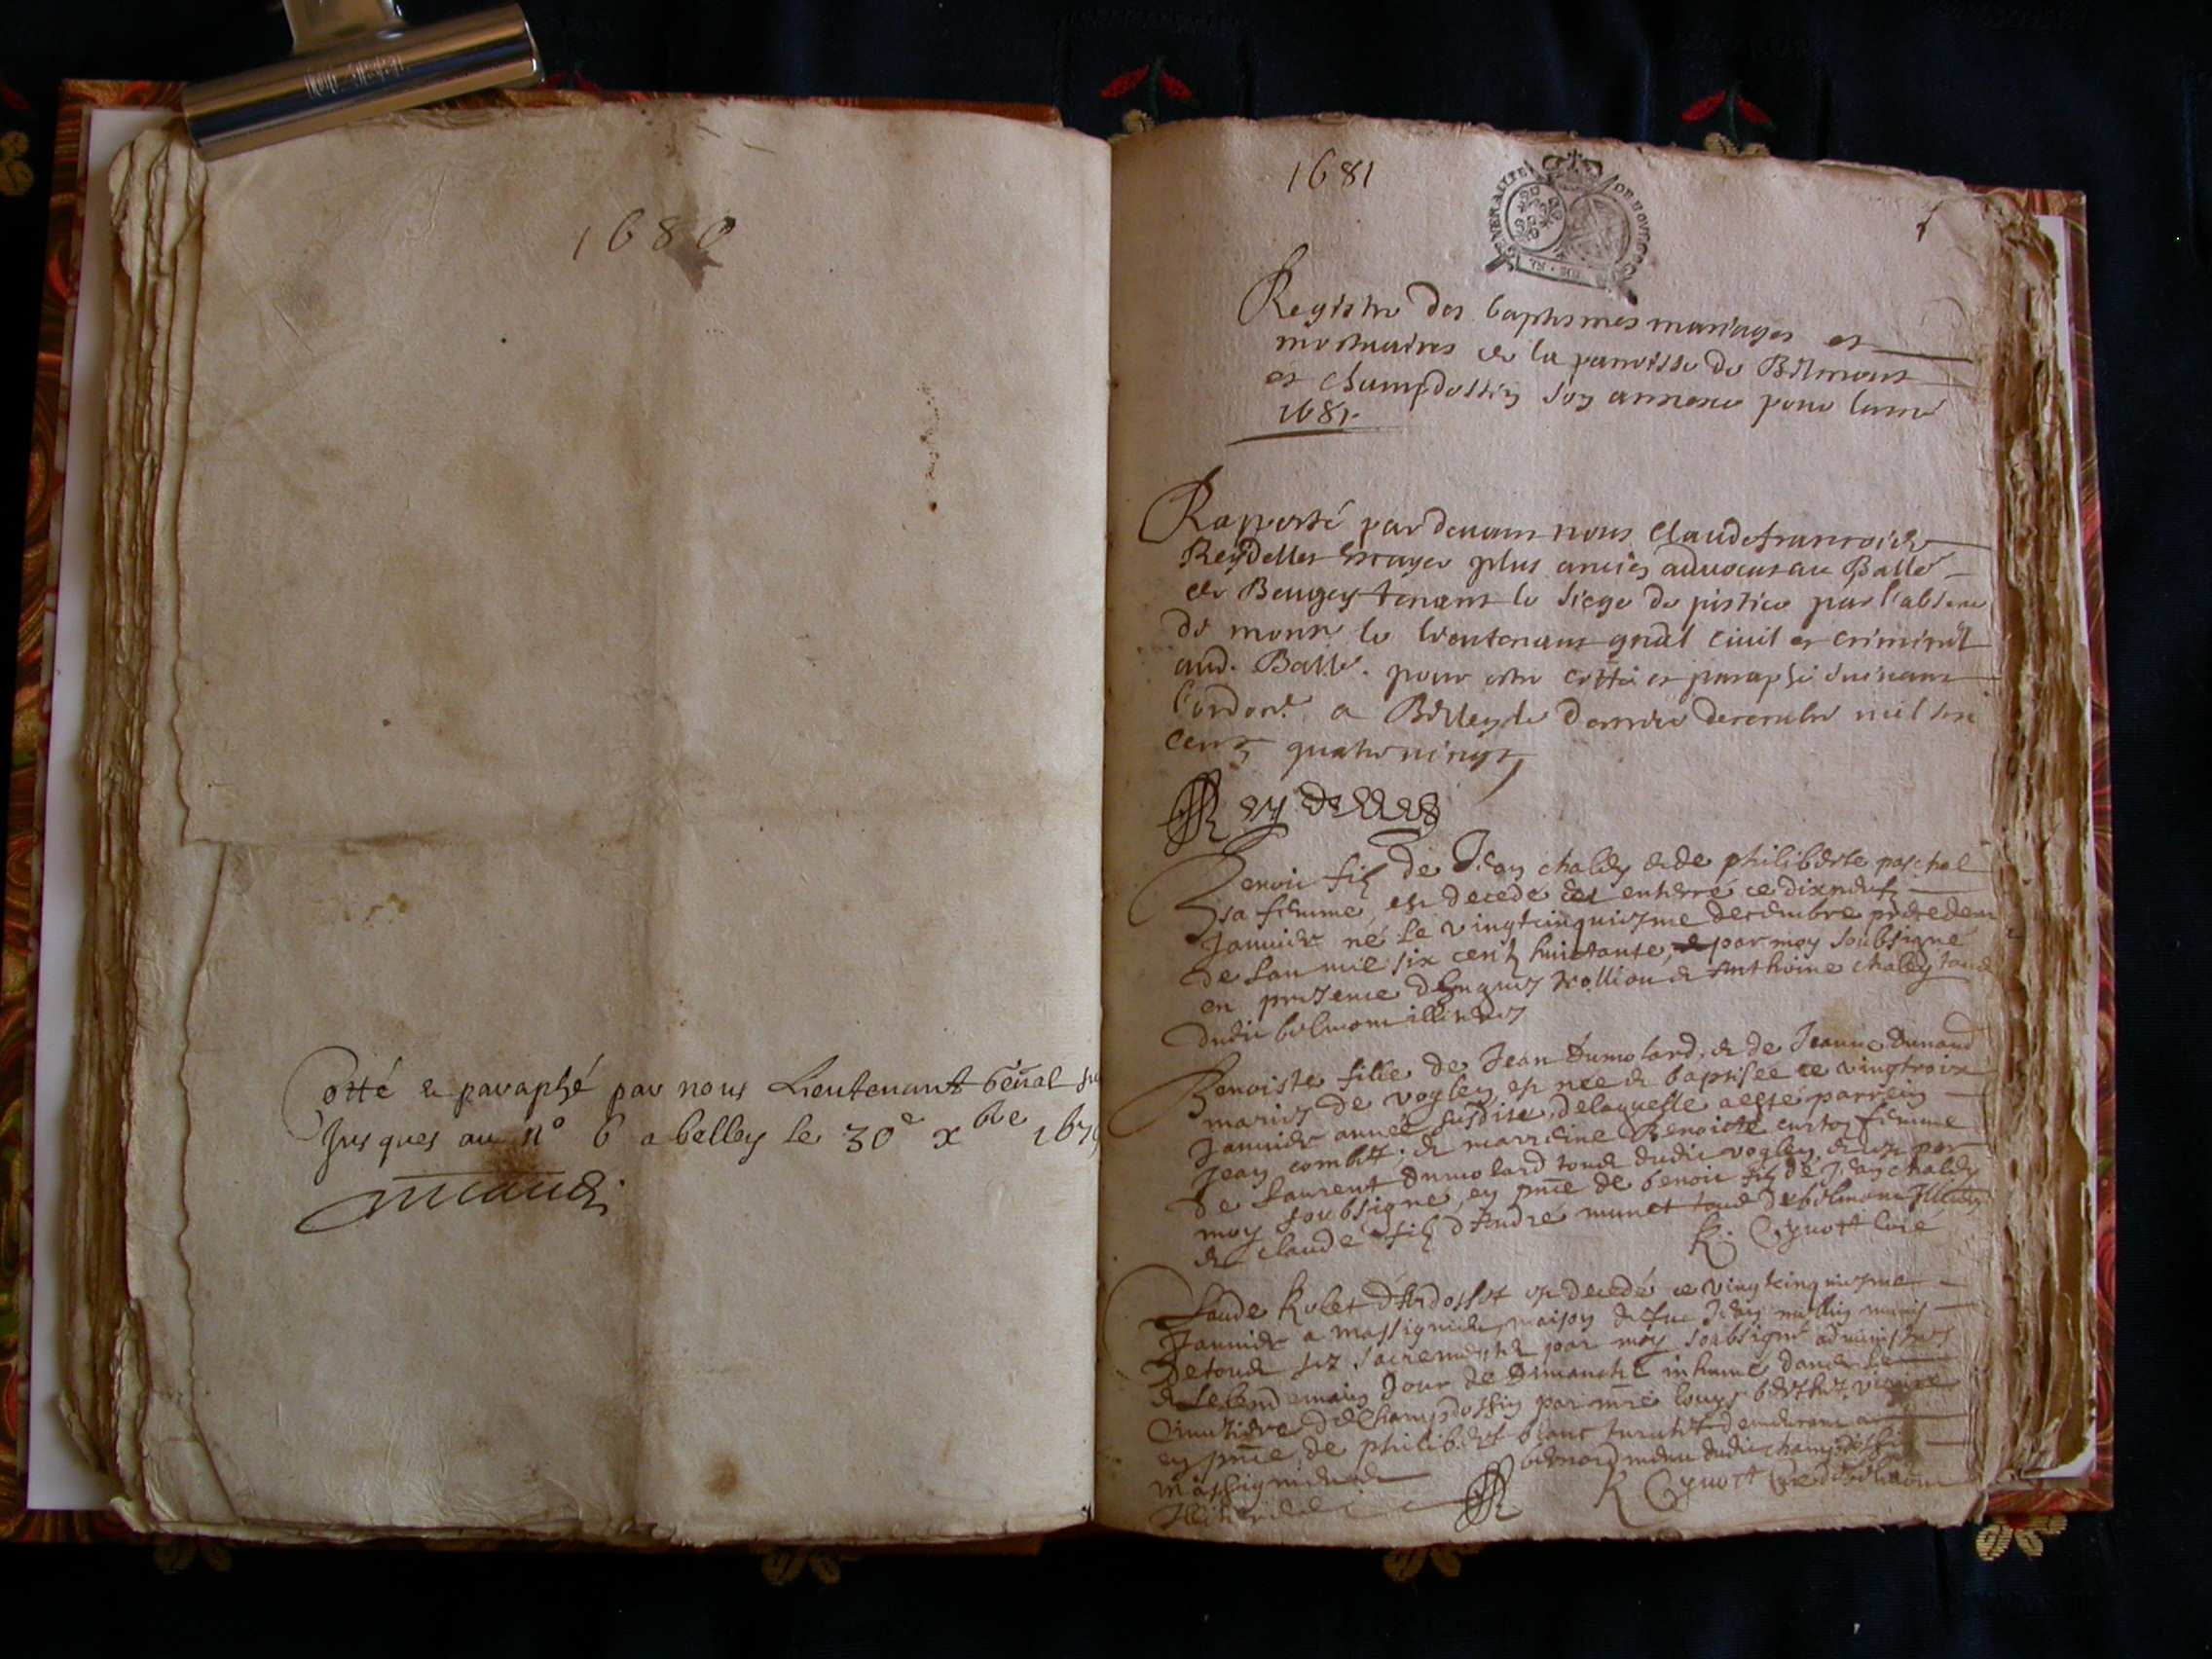 1680
Cotté & paraphé par nous Lieutenant Genãl
Jusques au n° 6 a belley le 30e xbre 167
1681
GENERALITE DE BOVRGO
Registre des baptesmes mariages et
mortuaires de la parroisse de Belmont
et champdossin son annexe pour lanné
1681.
Raporté par devant nous Claude francois
Reydellet Escuyer plus ancien advocat au Balle
de Beugey tenant le siege de justice par l'absence
de monsr le lieutenant gnãl civil et criminel
aud. Balle. pour estre cotté et paraphé suivant
l'ordone. a Belley le dernier decembre mil six
cents quatre vingt
Reydellet
Benoit filz de Jean chaley & de philiberte paschal
sa femme, est decedé & enterré ce dixneuf
Janvier né le vingtcinquiesme decembre precedent
de lan mil six centz huictante, par moy soubsigné
en presence de & Anthoine chaley tous
dudit belmont illiteres
Benoiste fille de Jean Dumolard, & de Jeanne Dunand
mariez de vogley est née & baptisée ce vingtroix
Janvier année susdite, de laquelle a esté parrein
Jean & marreine Benoiste femme
de Laurent Dumolard tous dudit vogley, & ce par
moy soubsigné, en pñce de benoit filz de Jean chaley
& claude filz d'André munet tous de belmont Illiteres
R. Cynott Curé
Claude Rolet d'Ardosset est decedé ce vingtcinquiesme
Janvier a massignieu, maison de feu Jean muni
de tous ses sacrementz par moy soubsigné administrez
& le lendemain Jour de Dimanche inhumé dans le
Cimetiere de Champdossin par mre Louys vicaire
en pñce de philibert blanc demeurant a
massignieu & bernard dudit champdossin
R Cynott Curé de belmont